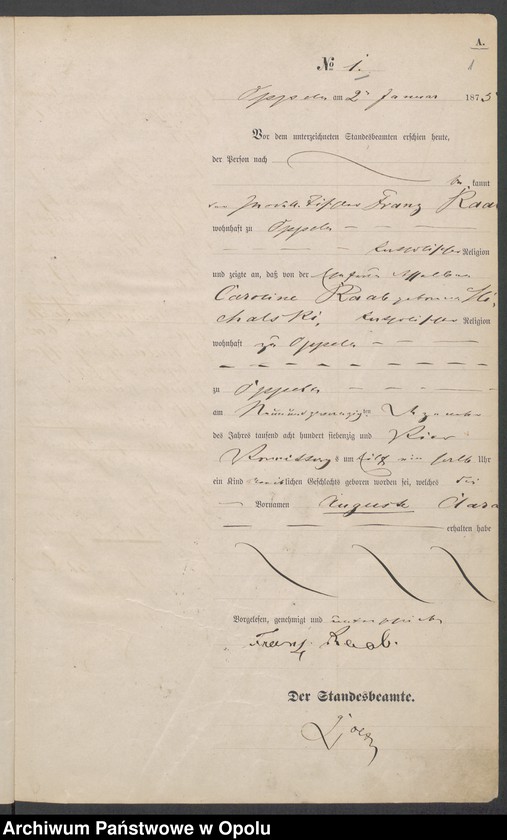 A.
№ 1.
Oppeln am 2n Januar 1875
Vor dem unterzeichneten Standesbeamten erschien heute,
der Person nach
kannt
Franz Raab
wohnhaft zu Oppeln
katholischer Religion
und zeigte an, daß von der Ehefrau
Caroline Raab geborenen Mi-
chalski, katholischer Religion
wohnhaft zu Oppeln
zu Oppeln
am Neunundzwanzigten Dezember
des Jahres tausend acht hundert siebenzig und Vier
Vormittags um Uhr
ein Kind weiblichen Geschlechts geboren worden sei, welches die
Vornamen Auguste Clara
erhalten habe
Vorgelesen, genehmigt und unterschrieben
Franz Raab.
Der Standesbeamte.
Archiwum Państwowe w Opolu